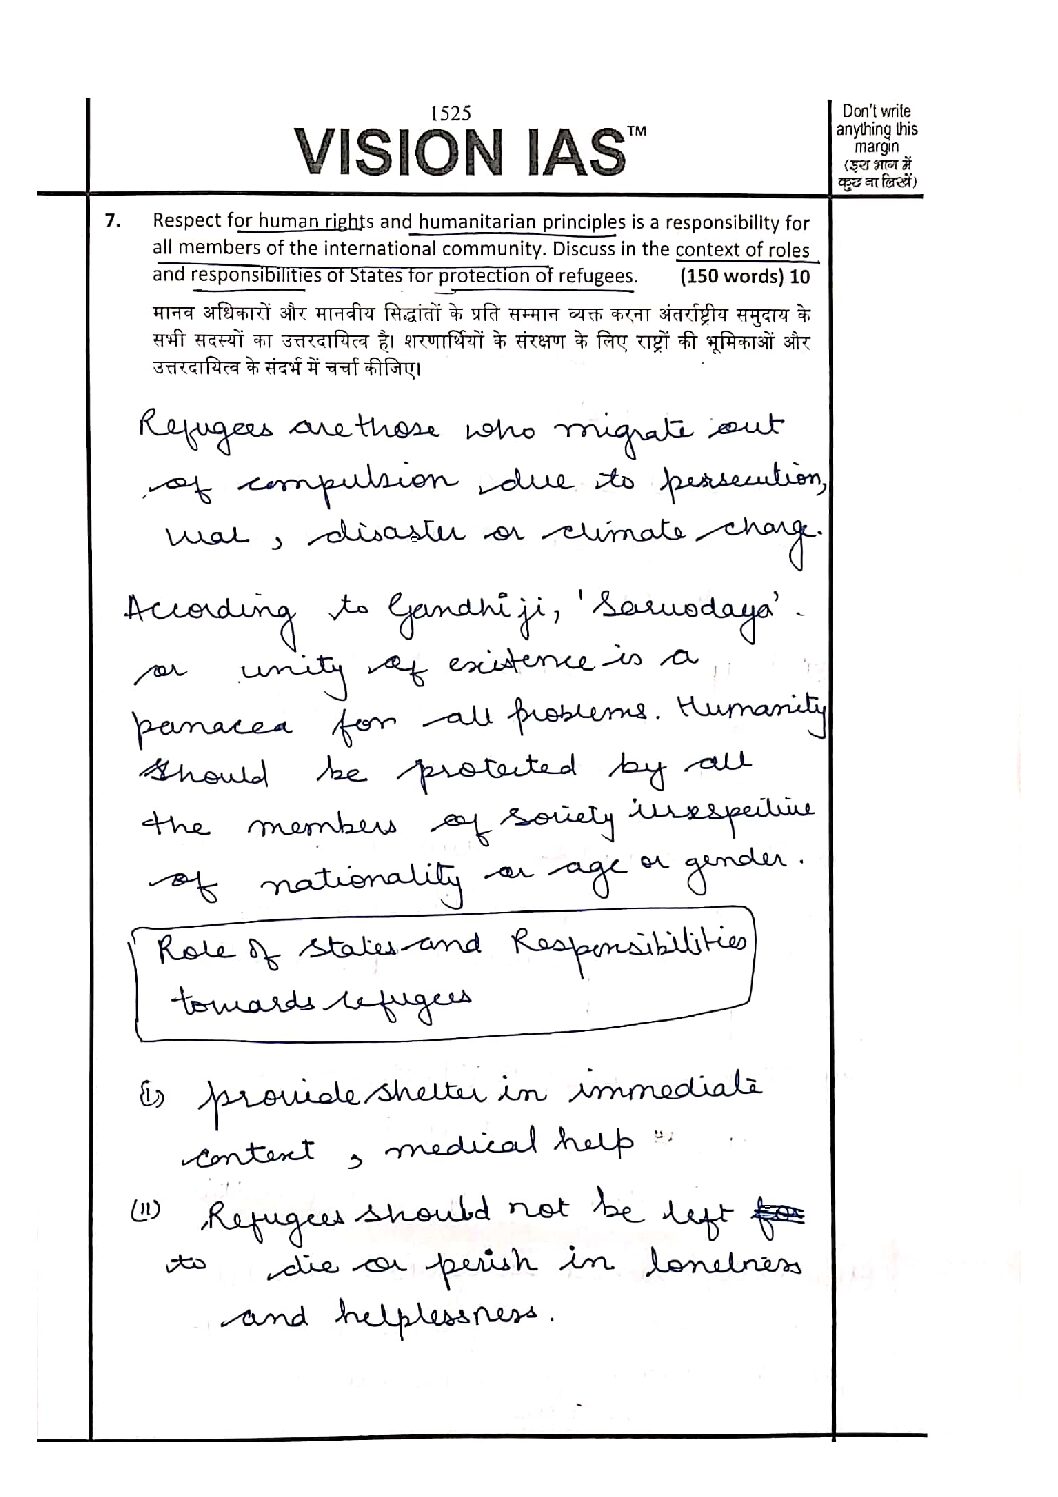 1525
VISION IAS™
Don't write
anything this
margin
(इस भाग में
कुछ ना लिखें)
7. Respect for human rights and humanitarian principles is a responsibility for
all members of the international community. Discuss in the context of roles
and responsibilities of States for protection of refugees. (150 words) 10
मानव अधिकारों और मानवीय सिद्धांतों के प्रति सम्मान व्यक्त करना अंतर्राष्ट्रीय समुदाय के
सभी सदस्यों का उत्तरदायित्व है। शरणार्थियों के संरक्षण के लिए राष्ट्रों की भूमिकाओं और
उत्तरदायित्व के संदर्भ में चर्चा कीजिए।
Refugees are those who migrate out
of compulsion due to persecution,
war, disaster or climate change.
According to Gandhiji, 'Sarvodaya'
or unity of existence is a
panacea for all problems. Humanity
should be protected by all
the members of society irrespective
of nationality or age or gender.
Role of states and Responsibilities
towards refugees
(i) provide shelter in immediate
context, medical help
(ii) Refugees should not be left
to die or perish in loneliness
and helplessness.